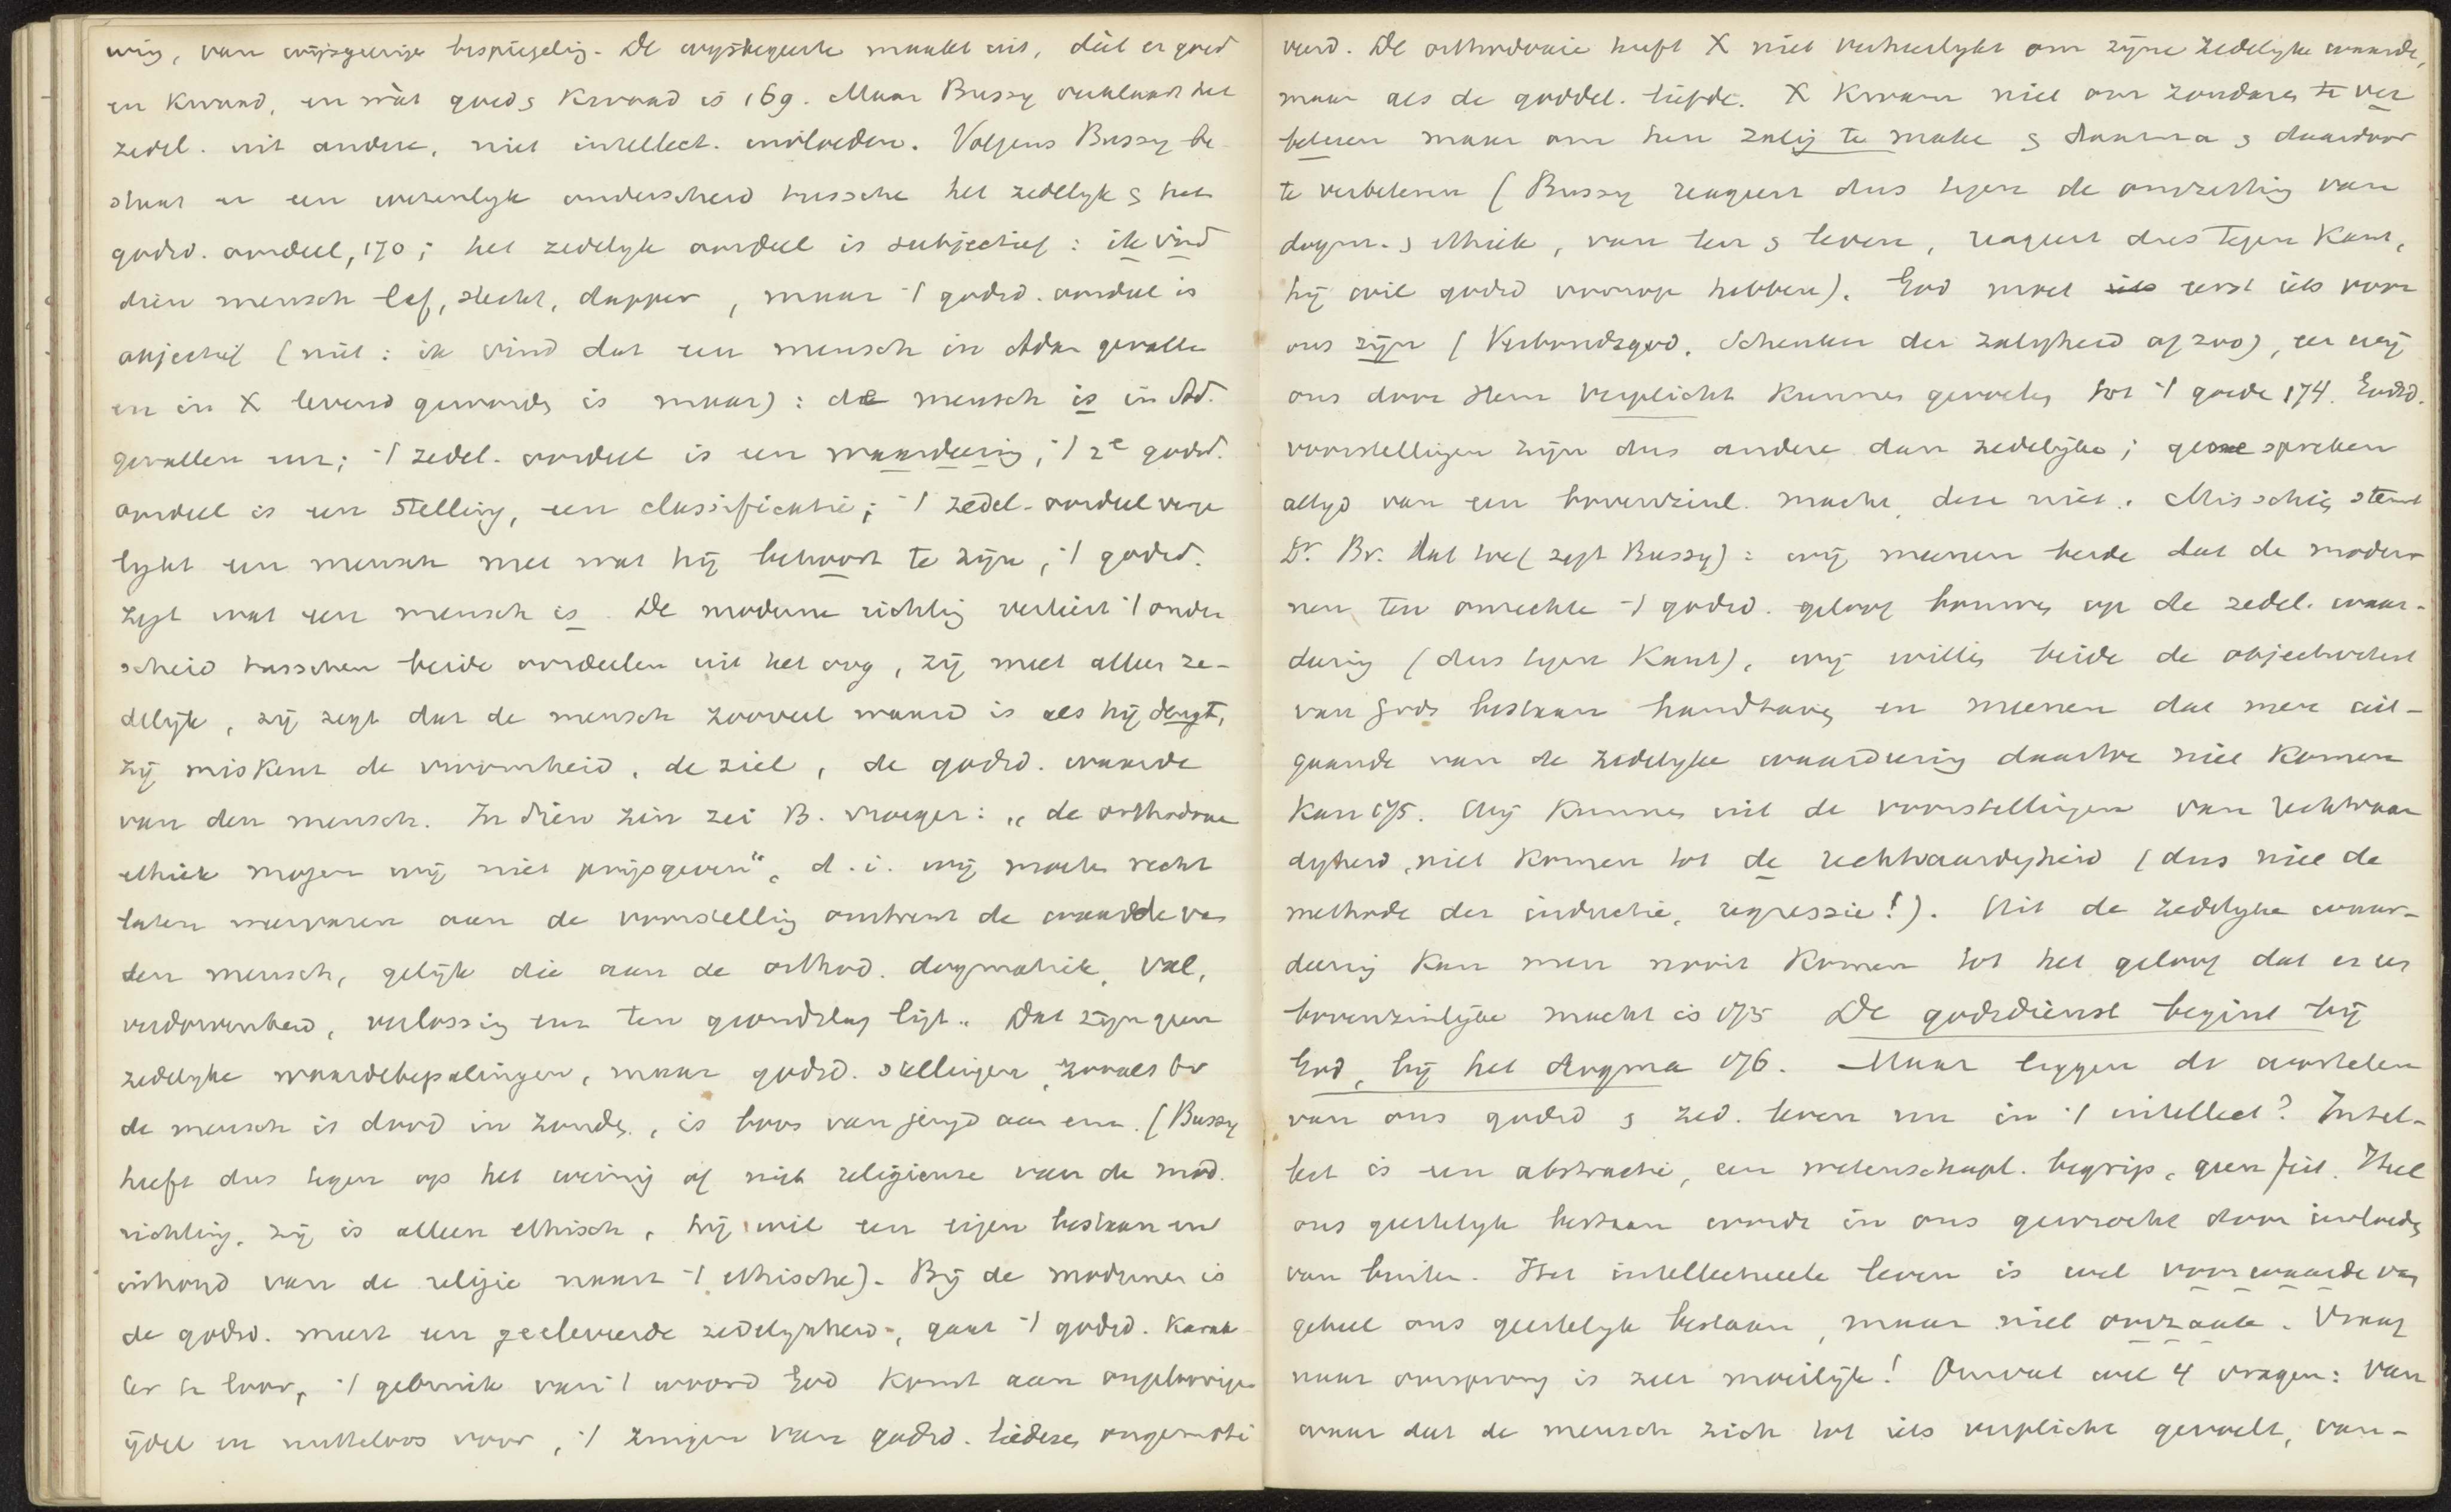 ning, van wijsgeerige bespiegeling. De wijsbegeerte maakt uit, dát er goed
en kwaad, en wàt goed & kwaad is 169. Maar Bussy verklaart het
zedel. uit andere, niet intellect. invloeden. Volgens Bussy be-
staat er een wezenlijk onderscheid tussche het zedelijk & het
godsd. oordeel, 170; het zedelijk oordeel is subjectief: ik vind
dien mensch laf, slecht, dapper, maar 't godsd. oordeel is
objectief (niet: ik vind dat een mensch in Adam gevalle
en in X levend geworden is maar): de mensch is in Ad.
gevallen enz; 't zedel. oordeel is een waardeering, 't 2e godsd.
oordeel is een stelling, een classificatie; 't zedel. oordeel verge
lijkt een mensch met wat hij behoort te zijn, 't godsd.
zegt wat een mensch is. De moderne richting verliest 't onder
scheid tusschen beide oordeelen uit het oog, zij meet alles ze-
delijk, zij zegt dat de mensch zooveel waard is als hij deugt,
zij miskent de vroomheid, de ziel, de godsd. waarde
van den mensch. In dien zin zei B. vroeger: „de orthodoxe
ethiek mogen wij niet prijsgeven", d.i. wij moeten recht
laten wervaren aan de voorstelling omtrent de waarde van
den mensch, gelijk die aan de orthod. dogmatiek, val,
verdorvenheid, verlossing enz ten grondslag ligt. Dat zijn geen
zedelijke waardebepalingen, maar godsd. stellingen, zooals bv
de mensch is dood in zonden, is boos van jeugd aan enz. (Bussy
heeft dus tegen op het weinig of niet religieuze van de mod.
richting, zij is alleen ethisch, hij wil een eigen bestaan en
inhoud van de religie naast 't ethische). Bij de modernen is
de godsd. meest een geëleveerde zedelijkheid, gaat 't godsd. karak
ter te loor, 't gebruik van 't woord God komt aan ongeloovigen
ijdel en nutteloos voor, 't zingen van godsd. liederen ongemoti
veerd. De orthodoxie heeft X niet verheerlijkt om zijne zedelijke waarde,
maar als de goddel. liefde. X kwam niet om zondaren te ver
beteren maar om hen zalig te make & daarna & daardoor
te verbeteren (Bussy reageert dus tegen de omzetting van
dogm. & ethiek, van leer & leven, reageert dus tegen Kant,
hij wil godsd voorop hebben). God moet eerst iets voor
ons zijn (Verbondsgod, Schenker der zaligheid of zoo), eer wij
ons door Hem verplicht kunnen gevoelen tot 't goede 174. Godsd.
voorstellingen zijn dus andere dan zedelijke; gene spreken
altijd van een bovenzinl. macht, deze niet. Misschien stemt
Dr. Br. dat toe (zegt Bussy): wij meenen beide dat de moder
nen ten onrechte 't godsd. geloof bouwen op de zedel. waar-
deering (dus tegen Kant), wij willen beide de objectiviteit
van Gods bestaan handhaven en meenen dat men uit-
gaande van de zedelijke waardeering daartoe niet komen
kan 175. Wij kunnen uit de voorstellingen van rechtvaar
digheid niet komen tot de rechtvaardigheid (dus niet de
methode der inductie, regressie!). Uit de zedelijke waar-
deering kan men nooit komen tot het geloof dat er een
bovenzinlijke macht is 175 De godsdienst begint bij
God, bij het dogma 176. Maar liggen de wortelen
van ons godsd & zed. leven nu in 't intellect? Intel-
lect is een abstractie, een wetenschapl. begrip, geen feit. Heel
ons geestelijk bestaan wordt in ons gewrocht door invloeden
van buiten. Het intellectueele leven is wel voorwaarde van
geheel ons geestelijk bestaan, maar niet oorzaak. Vraag
naar oorsprong is zeer moeilijk! Omvat wel 4 vragen: van
waar dat de mensch zich tot iets verplicht gevoelt, van-